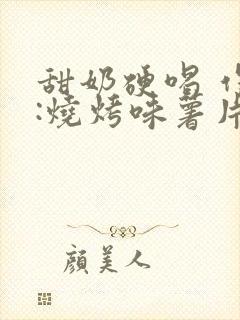 甜奶硬唱
:燒烤味薯片
顔美人